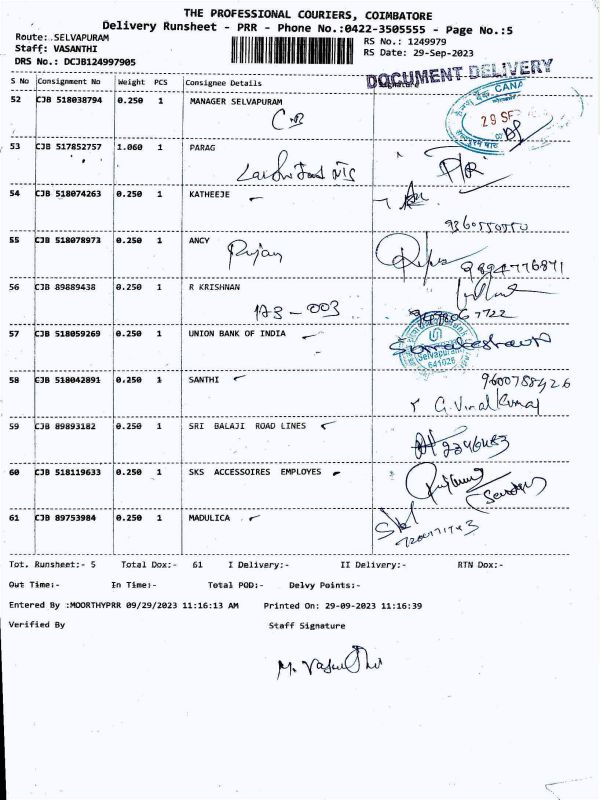 THE PROFESSIONAL COURIERS, COIMBATORE
Delivery Runsheet - PRR - Phone No.:0422-3505555 - Page No.:5
Route: SELVAPURAM
RS No.: 1249979
Staff: VASANTHI
RS Date: 29-Sep-2023
DRS No.: DCJB124997905
DOCUMENT DELIVERY
S No Consignment No Weight PCS Consignee Details Signature
52 CJB 518038794 0.250 1 MANAGER SELVAPURAM
CANA
29 SEP
53 CJB 517852757 1.060 1 PARAG
54 CJB 518074263 0.250 1 KATHEEJE
9360550550
55 CJB 518078973 0.250 1 ANCY
9894776871
56 CJB 89889438 0.250 1 R KRISHNAN
173-003
57 CJB 518059269 0.250 1 UNION BANK OF INDIA
Selvapuram
641026
58 CJB 518042891 0.250 1 SANTHI
9600788426
G. Vimal Kumar
59 CJB 89893182 0.250 1 SRI BALAJI ROAD LINES
2346453
60 CJB 518119633 0.250 1 SKS ACCESSOIRES EMPLOYES
61 CJB 89753984 0.250 1 MADULICA
Tot. Runsheet:- 5 Total Dox:- 61 I Delivery:- II Delivery:- RTN Dox:-
Out Time:- In Time:- Total POD:- Delvy Points:-
Entered By :MOORTHYPRR 09/29/2023 11:16:13 AM Printed On: 29-09-2023 11:16:39
Verified By Staff Signature
M. Vasanthi